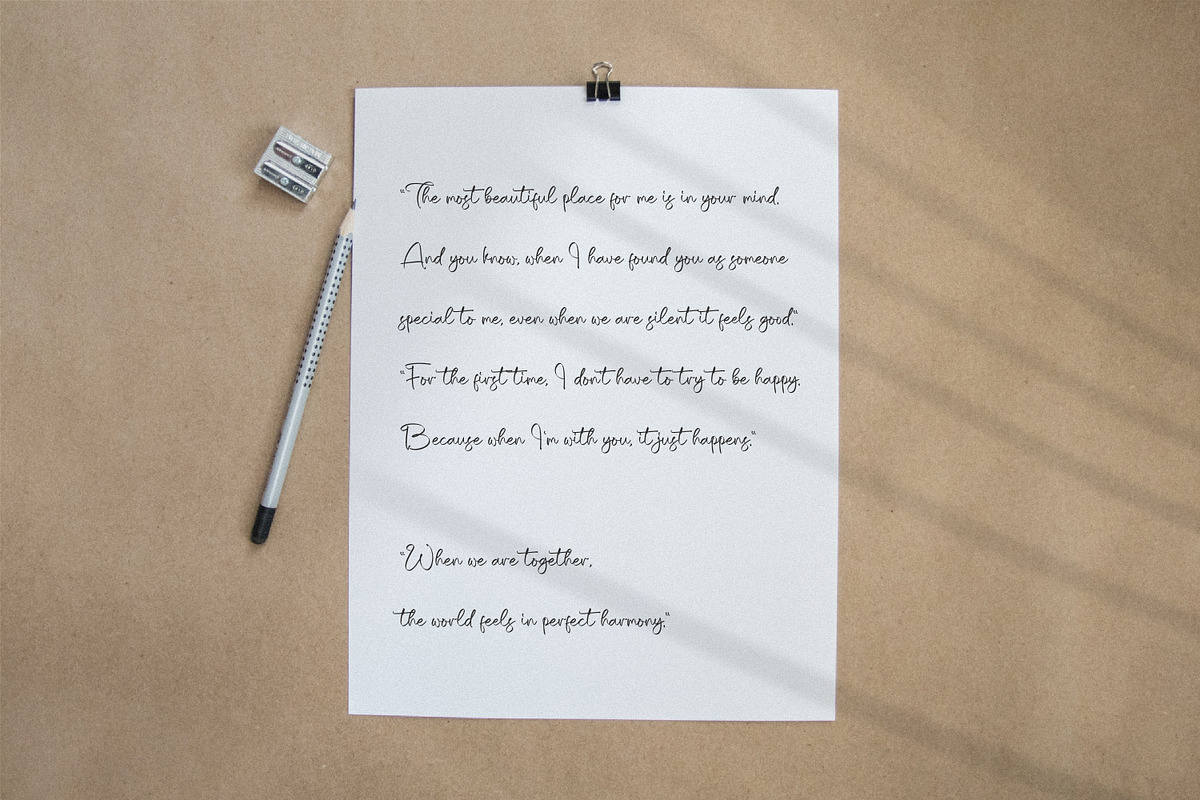 "The most beautiful place for me is in your mind.
And you know, when I have found you as someone
special to me, even when we are silent it feels good."
"For the first time, I don't have to try to be happy.
Because when I'm with you, it just happens."
"When we are together,
the world feels in perfect harmony."